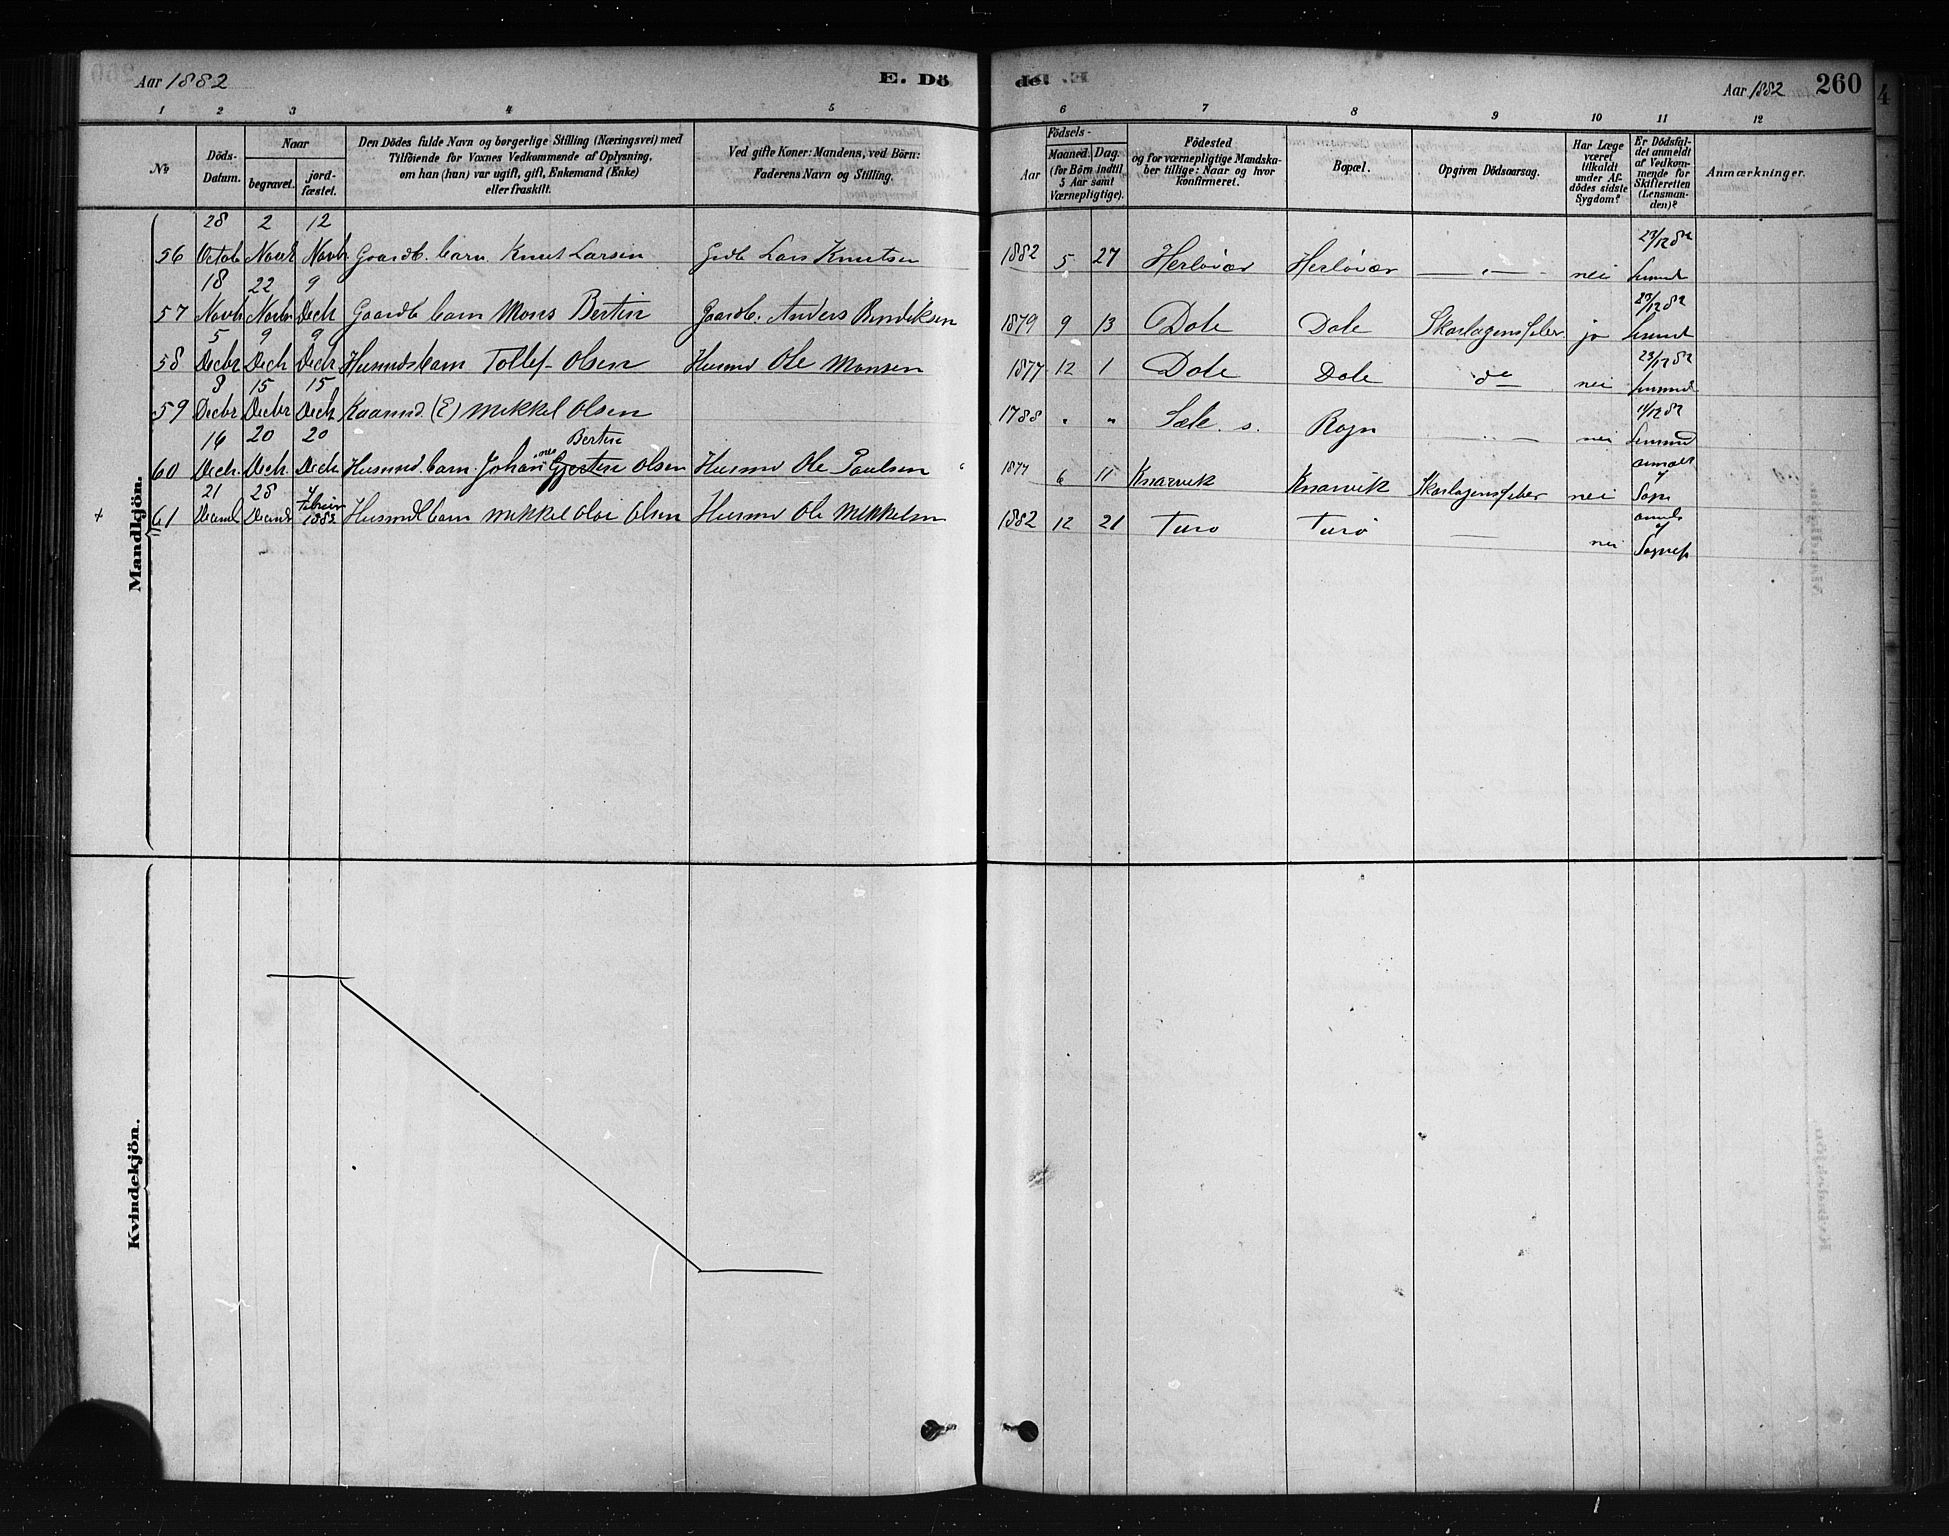 Aar 1882
E. Dö
de.
Aar 1882
260
1 2 3 4 5 6 7 8 9 10 11 12
No
Döds-Datum.
Naar
begravet.
jord-fæstet.
Den Dödes fulde Navn og borgerlige Stilling (Næringsvei) med
Tilföiende for Voxnes Vedkommende af Oplysning,
om han (hun) var ugift, gift, Enkemand (Enke)
eller fraskilt.
Ved gifte Koner: Mandens, ved Börn:
Faderens Navn og Stilling.
Födsels-
Aar
Maaned. Dag.
(for Börn indtil
5 Aar samt
Værnepligtige).
Födested
og for værnepligtige Mandska-
ber tillige: Naar og hvor
konfirmeret.
Bopæl.
Opgiven Dödsaarsag.
Har Læge
været
tilkaldt
under Af-
dödes sidste
Sygdom?
Er Dödsfal-
det anmeldt
af Vedkom-
mende for
Skifteretten
(Lensman-
den)?
Anmærkninger.
Mandkjön.
28 2 12
56 Octob Novbr Novbr Gaardb. barn Knut Larsen Grdb Lars Knutsen 1882 5 27 Herløvær Herløvær — " — nei 23/12 82
18 22 9
57 Novb Novbr Decb Gaardb barn Mons Bertin Gaardb. Anders Bendiksen 1879 9 13 Dale Dale Skarlagensfeber ja 23/12 82
5 9 9
58 Decbr Decb Decb Husmdsbarn Tollef Olsen Husmd Ole Monsen 1877 12 1 Dale Dale do nei 23/12 82
8 15 15
59 Decbr Decbr Decb Kaarmd (E) Mikkel Olsen 1788 " " Sæle s. Rogn — " — nei
16 20 20
Bertin
60 Decb. Decb. Decb Husmd. barn Johannes Gjertin Olsen Husmd Ole Paulsen 1877 6 11 Knarvik Knarvik Skarlagensfeber nei
21 28 4
+ 61 Februar 1882 Husmdbarn Mikkel Olai Olsen Husmd Ole Mikkelsen 1882 12 21 Turø Turø — nei
Kvindekjön.